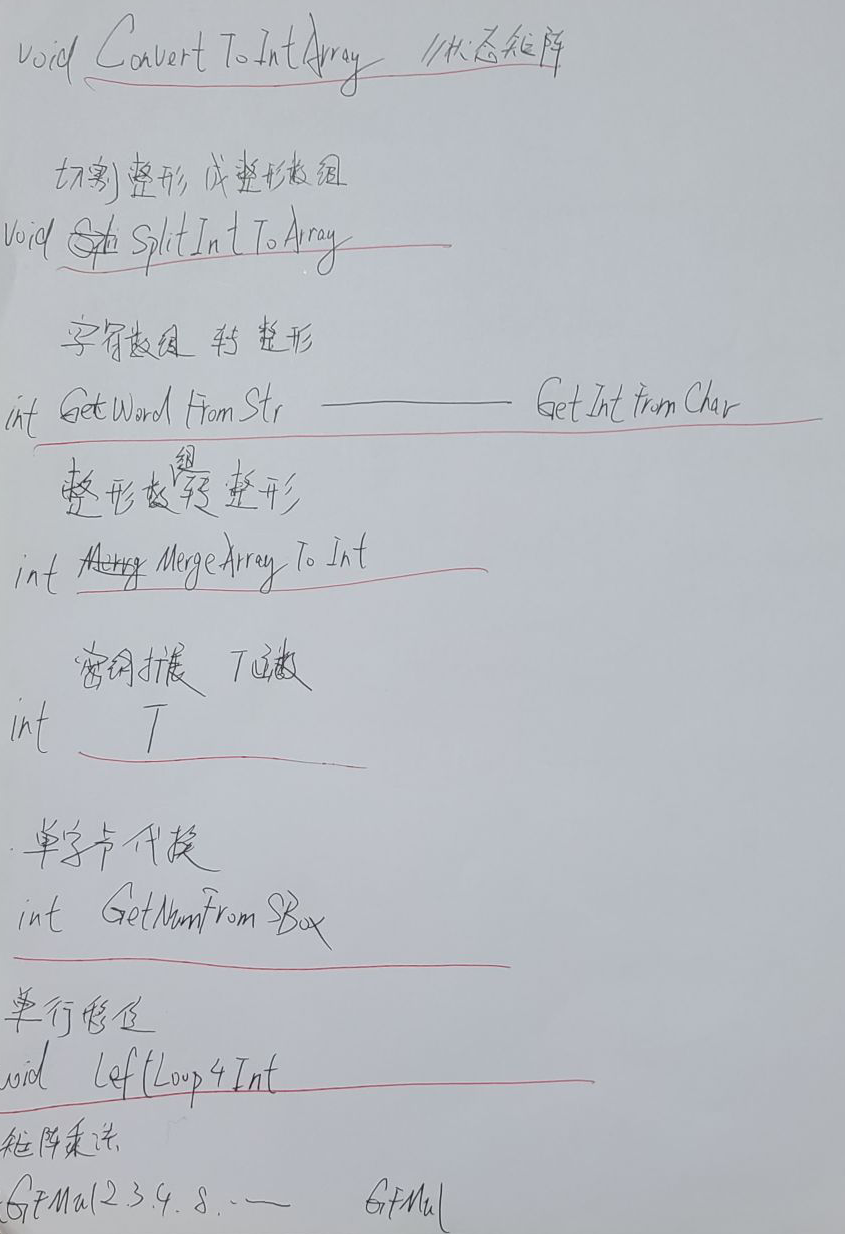 void ConvertToIntArray //状态矩阵
切割整形 成整形数组
void SplitIntToArray
字符数组 转 整形
int GetWordFromStr —— GetIntFromChar
整形数组转整形
int MergeArrayToInt
密钥扩展 T函数
int T
单字节代换
int GetNumFromSBox
单行移位
void LeftLoop4Int
矩阵乘法
GFMul2.3.4.8.·— GFMul